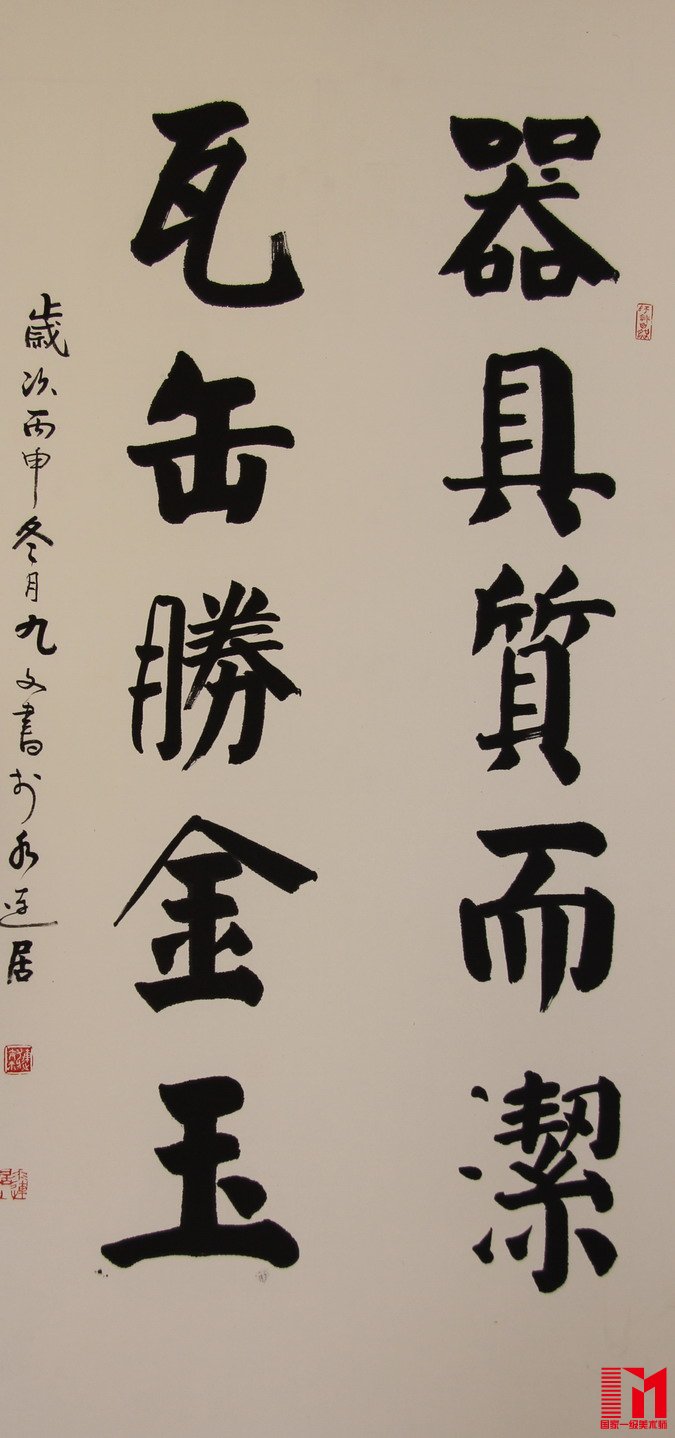 器具質而潔
瓦缶勝金玉
歲次丙申冬月九文書於水蓮居
国家一级美术师